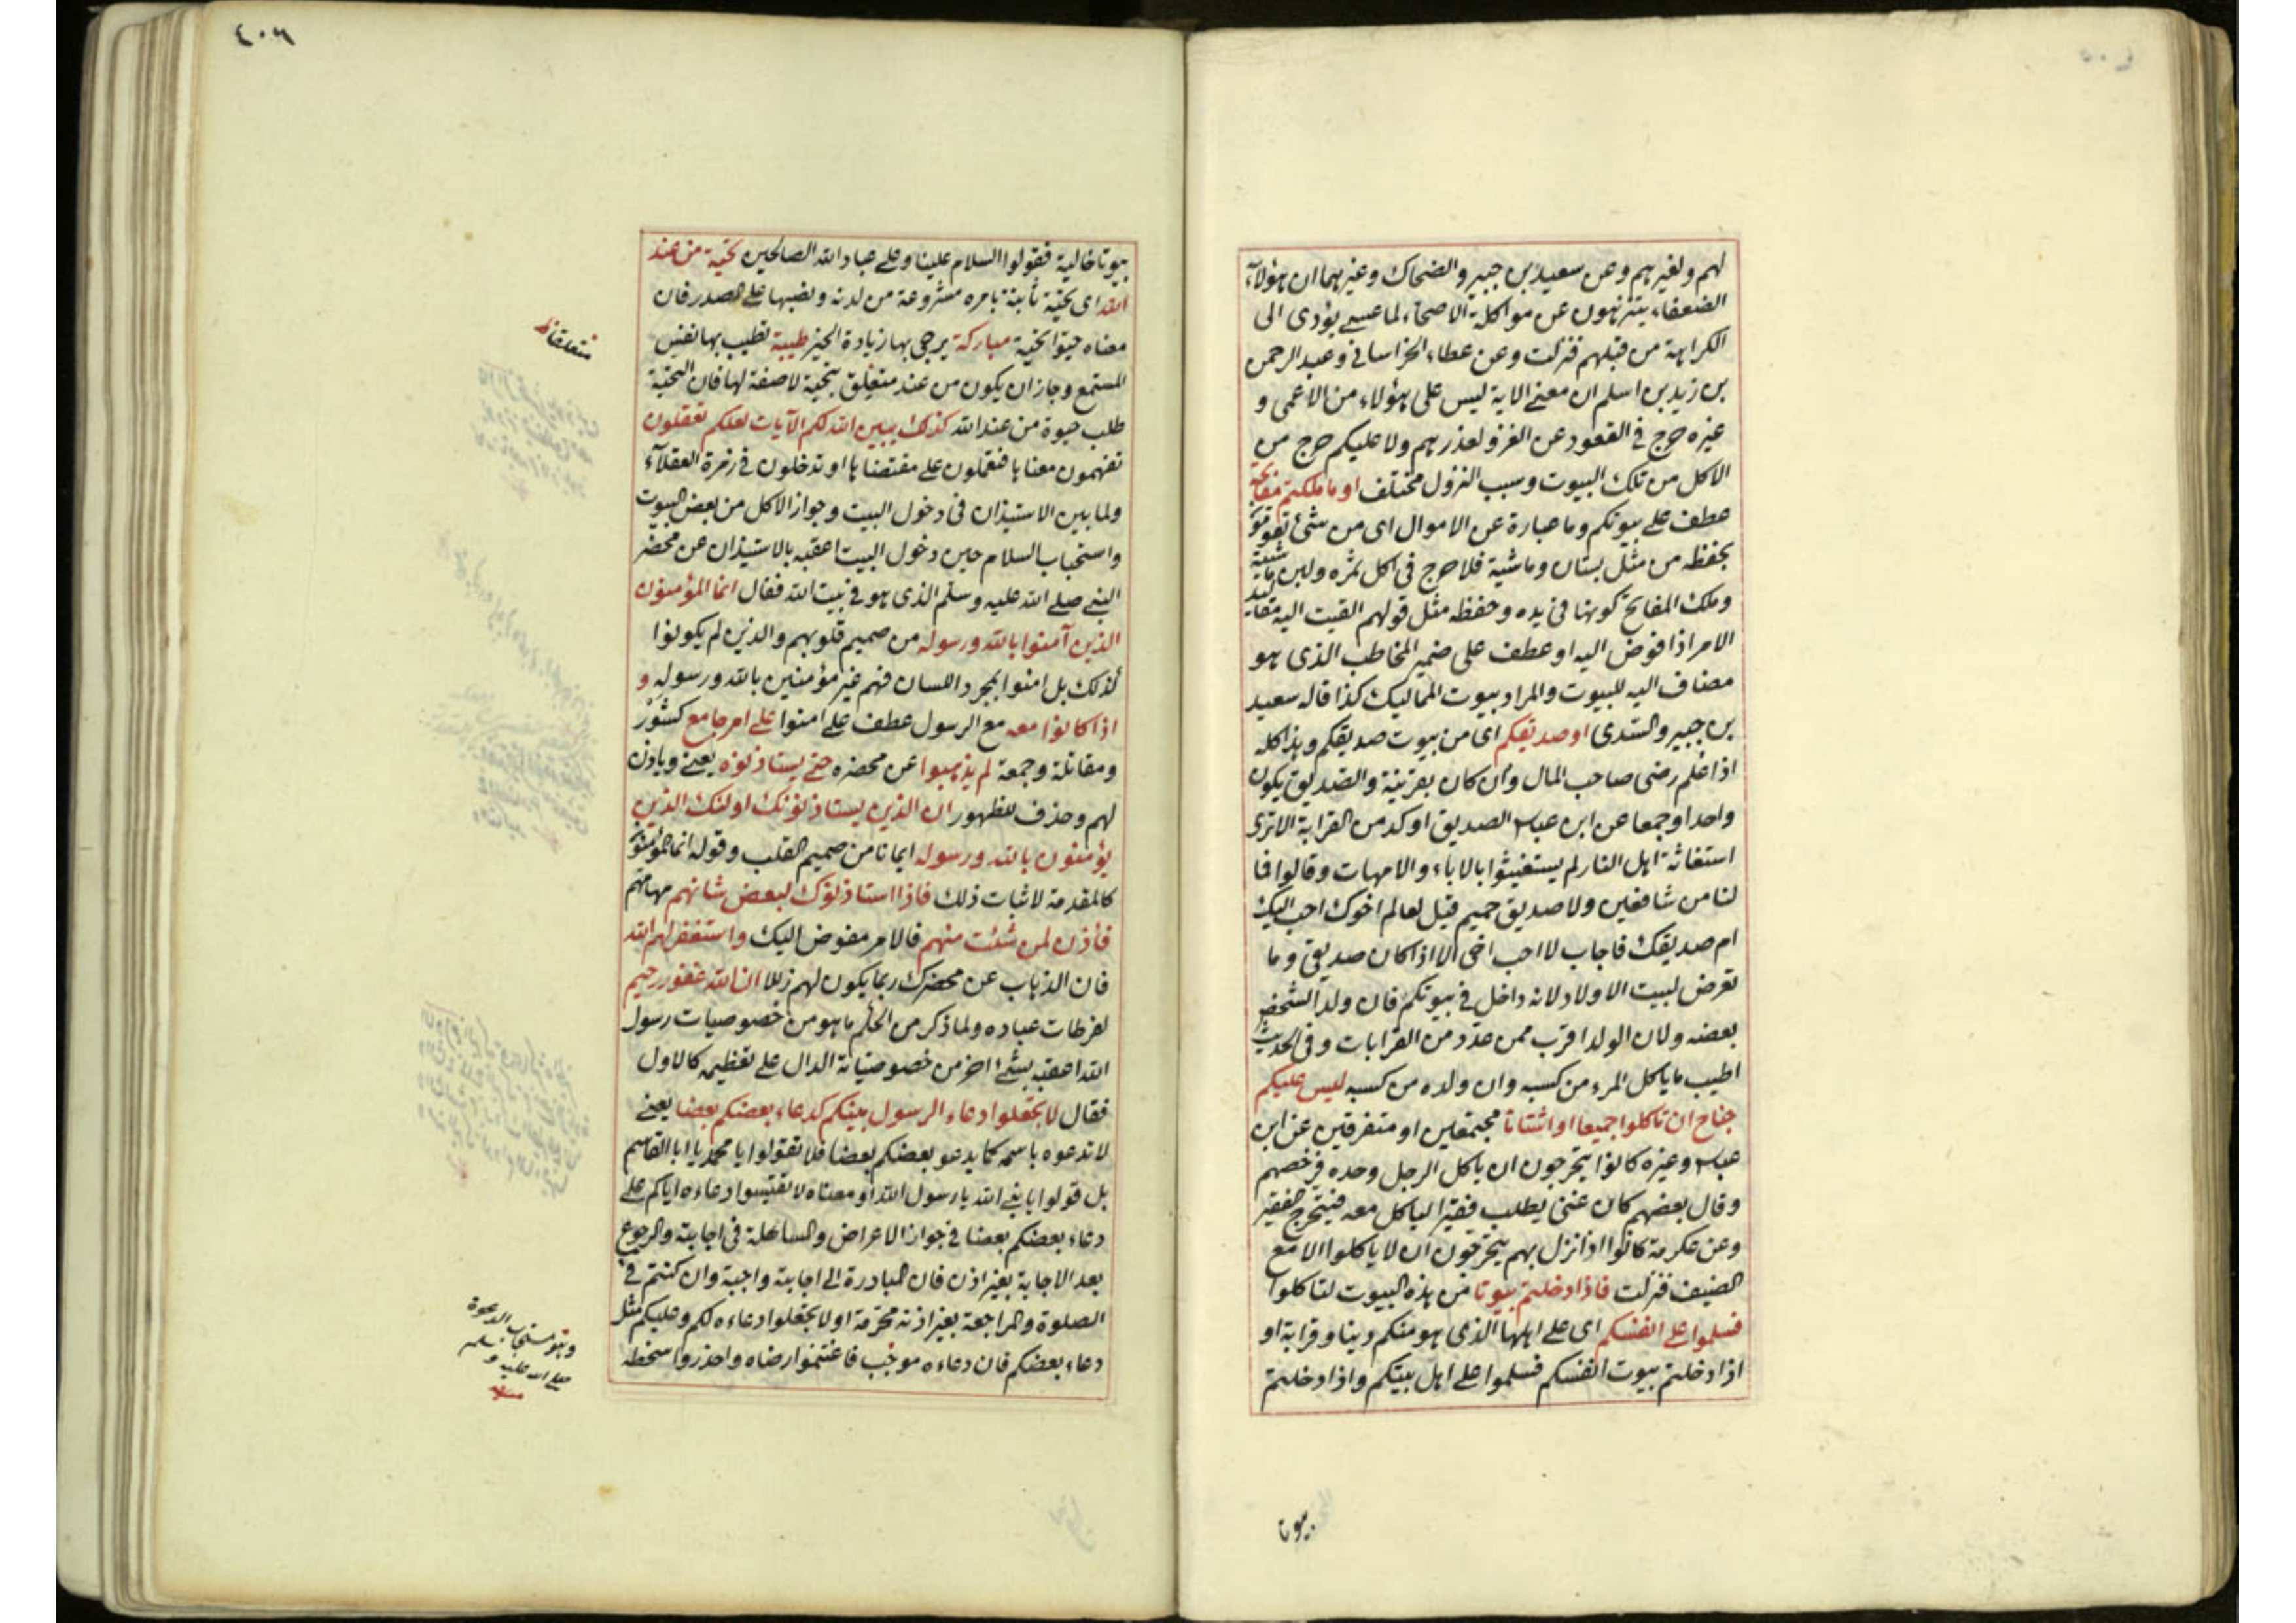 لهم ولغيرهم وعن سعيد بن جبير والضحاك وغيرهما ان هؤلآء
الضعفاء يتنزهون عن مواكلة الاصحاء لما عسى يؤدى الى
الكراهة من قبلهم فنزلت وعن عطاء الخراسانى وعبد الرحمن
بن زيد بن اسلم ان معنى الاية ليس على هؤلاء من الاعمى و
غيره حرج فى القعود عن الغزو لعذرهم ولا عليكم حرج من
الاكل من تلك البيوت وسبب النزول مختلف او ما ملكتم مفاتحه
عطف على بيوتكم وما عبارة عن الاموال اى من شئ تقوموا
بحفظه من مثل بستان وماشية فلا حرج فى اكل ثمره ولبن ماشيته
وملك المفاتح كونها فى يده وحفظه مثل قولهم القيت اليه مقاليد
الامر اذا فوض اليه او عطف على ضمير المخاطب الذى هو
مضاف اليه للبيوت والمراد بيوت المماليك كذا قاله سعيد
بن جبير والسدى او صديقكم اى من بيوت صديقكم وهذا كله
اذا علم رضى صاحب المال وان كان بقرينة والصديق يكون
واحدا وجمعا عن ابن عباس الصديق اوكد من القرابة الا ترى
استغاثة اهل النار لم يستغيثوا بالاباء والامهات وقالوا فما
لنا من شافعين ولا صديق حميم قيل لعالم اخوك احب اليك
ام صديقك فاجاب لا احب اخى الا اذا كان صديقى وما
تعرض لبيت الاولاد لانه داخل فى بيوتكم فان ولد الشخص
بعضه ولان الولد اقرب ممن عدد من القرابات وفى الحديث
اطيب ما ياكل المرء من كسبه وان ولده من كسبه ليس عليكم
جناح ان تاكلوا جميعا او اشتاتا مجتمعين او متفرقين عن ابن
عباس وغيره كانوا يتحرجون ان ياكل الرجل وحده فرخصهم
وقال بعضهم كان غنى يطلب فقيرا لياكل معه فيتحرج الفقير
وعن عكرمة كانوا اذا نزل بهم يتحرجون ان لا ياكلوا الا مع
الضيف فنزلت فاذا دخلتم بيوتا من هذه البيوت لتاكلوا
فسلموا على انفسكم اى على اهلها الذى هو منكم دينا وقرابة او
اذا دخلتم بيوت انفسكم فسلموا على اهل بيتكم واذا دخلتم
بيوتا
٤٠٦
بيوتا خالية فقولوا السلام علينا وعلى عباد الله الصالحين تحية من عند
الله اى تحية ثابتة بامره مشروعة من لدنه ونصبها على المصدر فان
معناه حيوا تحية مباركة يرجى بها زيادة الخير طيبة تطيب بها نفس
المستمع وجاز ان يكون من عند متعلق بتحية لا صفة لها فان التحية
طلب حيوة من عند الله كذلك يبين الله لكم الآيات لعلكم تعقلون
تفهمون معناها فتعملون على مقتضاها او تدخلون فى زمرة العقلآء
ولما بين الاستيذان فى دخول البيت وجواز الاكل من بعض البيوت
واستحباب السلام حين دخول البيت اعقبه بالاستيذان عن محضر
النبى صلى الله عليه وسلم الذى هو فى بيت الله فقال انما المؤمنون
الذين آمنوا بالله ورسوله من صميم قلوبهم والذين لم يكونوا
كذلك بل امنوا بمجرد اللسان فهم غير مؤمنين بالله ورسوله و
اذا كانوا معه مع الرسول عطف على امنوا على امر جامع كشور
ومقاتلة وجمعة لم يذهبوا عن محضره حتى يستاذنوه يعنى وياذن
لهم وحذف للظهور ان الذين يستاذنونك اولئك الذين
يؤمنون بالله ورسوله ايمانا من صميم القلب وقوله انما المؤمنون
كالمقدمة لاثبات ذلك فاذا استاذنوك لبعض شانهم مهامهم
فأذن لمن شئت منهم فالامر مفوض اليك واستغفر لهم الله
فان الذهاب عن محضرك ربما يكون لهم زللا ان الله غفور رحيم
لفرطات عباده ولما ذكر من الحكم ما هو من خصوصيات رسول
الله اعقبه بشئ اخر من خصوصياته الدال على تعظيمه كالاول
فقال لا تجعلوا دعاء الرسول بينكم كدعاء بعضكم بعضا يعنى
لا تدعوه باسمه كما يدعو بعضكم بعضا فلا تقولوا يا محمد يا ابا القاسم
بل قولوا يا نبى الله يا رسول الله او معناه لا تقيسوا دعاءه اياكم على
دعاء بعضكم بعضا فى جواز الاعراض والمساهلة فى اجابته والرجوع
بعد الاجابة بغير اذن فان المبادرة الى اجابته واجبة وان كنتم فى
الصلوة والمراجعة بغير اذنه محرمة او لا تجعلوا دعاءه لكم وعليكم مثل
دعاء بعضكم فان دعاءه موجب فاغتنموا رضاه واحذروا سخطه
وهو مستجاب الدعوة
صلى الله عليه وسلم